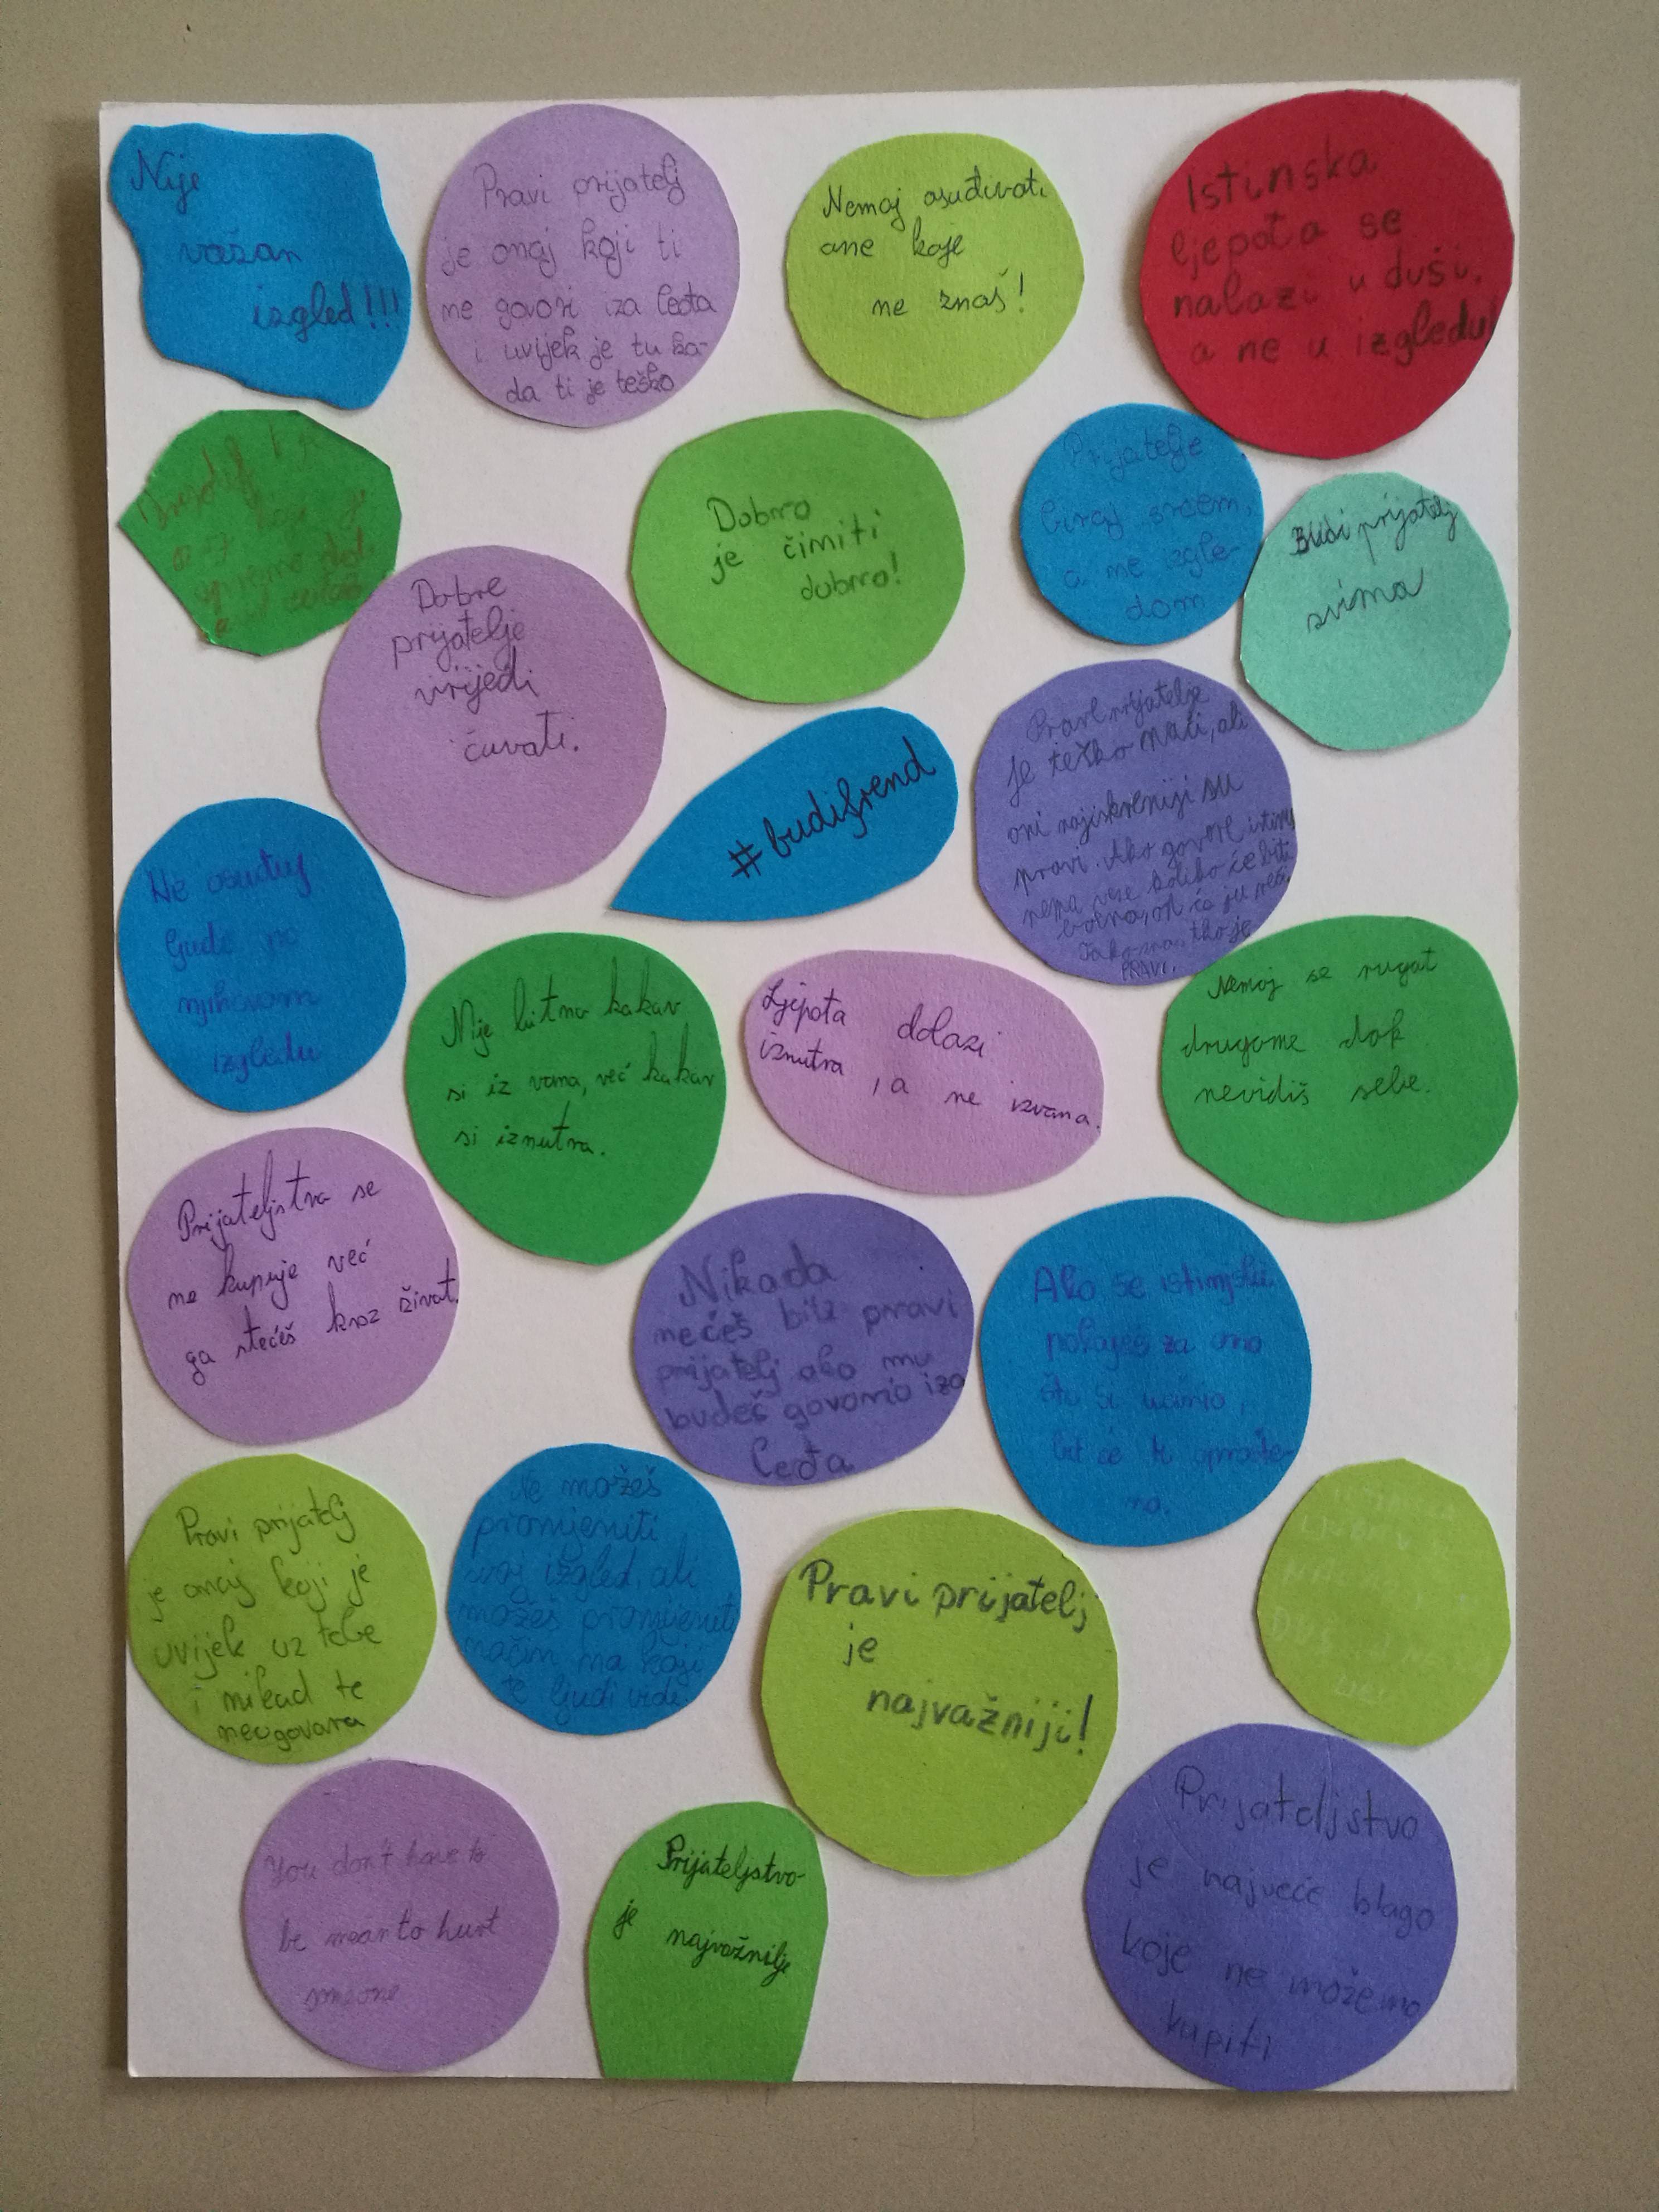 Nije
važan
izgled!!!
Pravi prijatelj
je onaj koji ti
ne govori iza leđa
i uvijek je tu ka-
da ti je teško
Nemoj osuđivati
one koje
ne znaš!
Istinska
ljepota se
nalazi u duši,
a ne u izgledu!
Dobro
je činiti
dobro!
Prijatelje
biraj srcem,
a ne izgle-
dom
Budi prijatelj
svima
Dobre
prijatelje
vrijedi
čuvati.
#budifrend
Prave prijatelje
je teško naći, ali
oni najiskreniji su
pravi. Ako govore istinu
nema veze koliko će biti
bolna, on će ju reći.
PRAVI.
Ne osuđuj
ljude po
njihovom
izgledu
Nije bitno kakav
si iz vana, već kakav
si iznutra.
Ljepota dolazi
iznutra, a ne izvana.
Nemoj se rugat
drugome dok
nevidiš sebe.
Prijateljstvo se
ne kupuje već
ga stečeš kroz život.
Nikada
nećeš biti pravi
prijatelj ako mu
budeš govorio iza
leđa
Ako se istinski
pokaješ za ono
što si učinio,
bit će ti oprošte-
no.
Pravi prijatelj
je onaj koji je
uvijek uz tebe
i nikad te
neogovara
Ne možeš
promijeniti
svoj izgled, ali
možeš promijeniti
način na koji
te ljudi vide.
Pravi prijatelj
je
najvažniji!
You don't have to
be mean to hurt
someone
Prijateljstvo
je najvažnije
Prijateljstvo
je najveće blago
koje ne možemo
kupiti